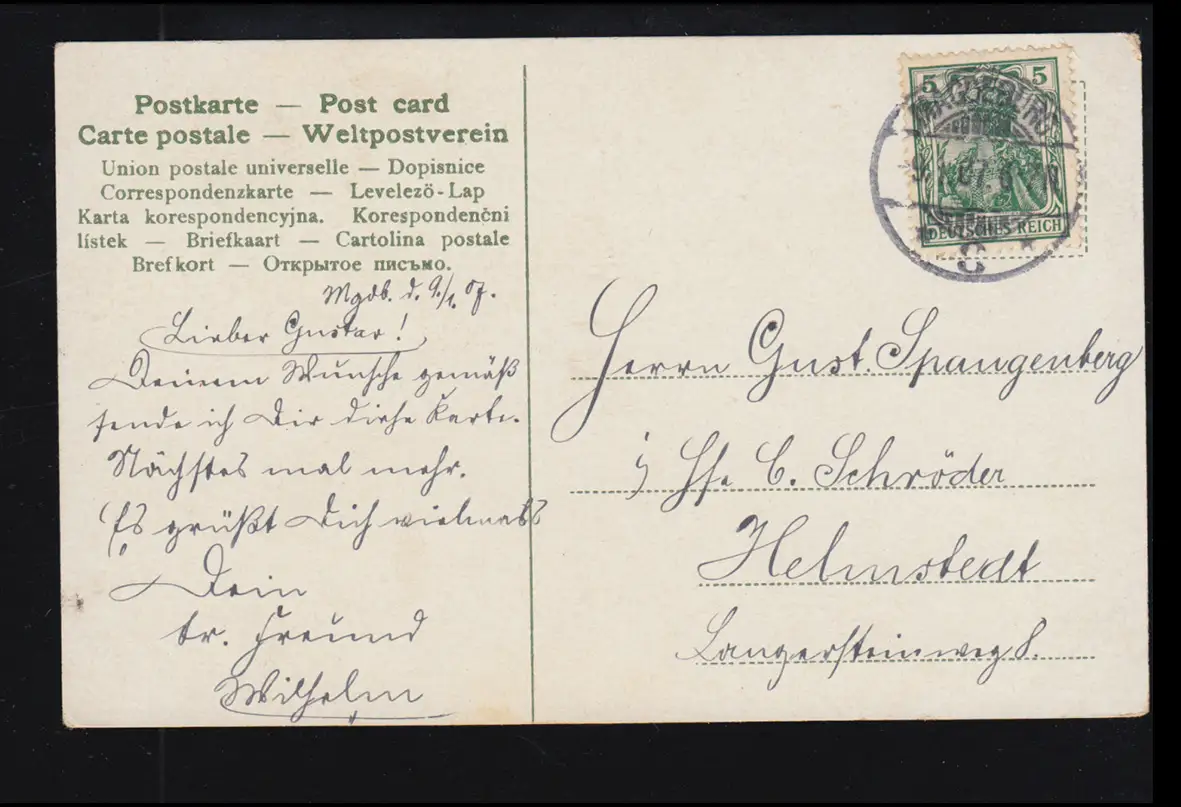 Postkarte — Post card
Carte postale — Weltpostverein
Union postale universelle — Dopisnice
Correspondenzkarte — Levelezö-Lap
Karta korespondencyjna. Korespondenčni
lístek — Briefkaart — Cartolina postale
Brefkort — Открытое письмо.
Mgdb. d. 9./1. 07.
Lieber Gustav!
Deinem Wunsche gemäß
sende ich Dir diese Karte.
Nächstes mal mehr.
Es grüßt Dich vielmals
Dein
tr. Freund
Wilhelm
5 5
MAGDEBURG
DEUTSCHES REICH
C
Herrn Gust. Spangenberg
C. Schröder
Helmstedt
Langersteinweg 8.